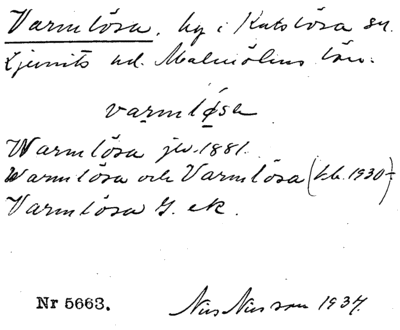 Varmlösa, by i Katslösa sn.
Ljunits hd. Malmöhus län.
varmløsa
Warmlösa jw. 1881.
Warmlösa och Varmlösa (k.b. 1930-)
Varmlösa G. ek.
Nr 5663.
Nils Nilsson 1937.